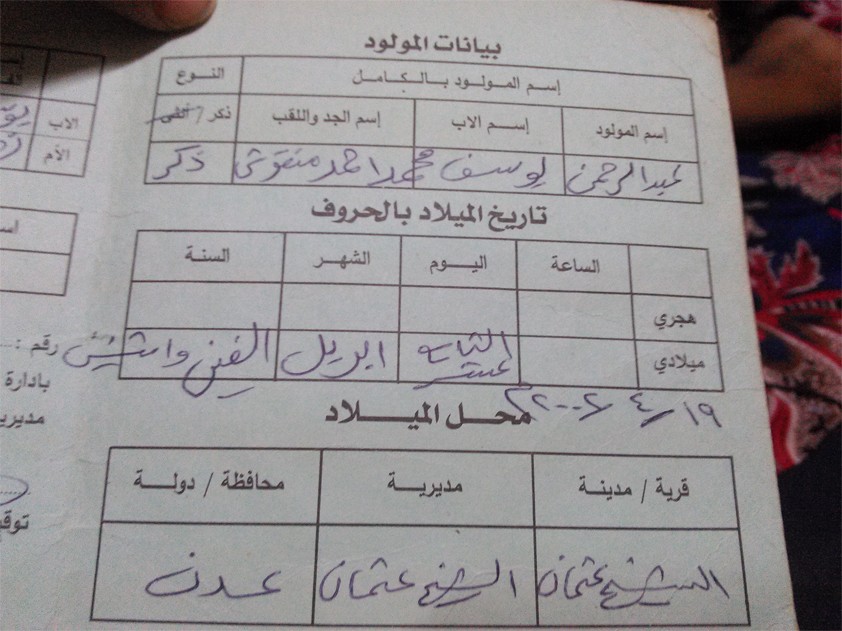 بيانات المولود
إسم المولود بالكامل النوع
إسم المولود إسم الاب إسم الجد واللقب ذكر / أنثى
عبدالرحمن يوسف محمد احمد منقوش ذكر
تاريخ الميلاد بالحروف
الساعة اليوم الشهر السنة
هجري
ميلادي عشر ابريل الفين واثنين
١٩ / ٤ / ٢٠٠٢م
محل الميلاد
قرية / مدينة مديرية محافظة / دولة
الشيخ عثمان الشيخ عثمان عدن
الاب
الأم
رقم :
بادارة